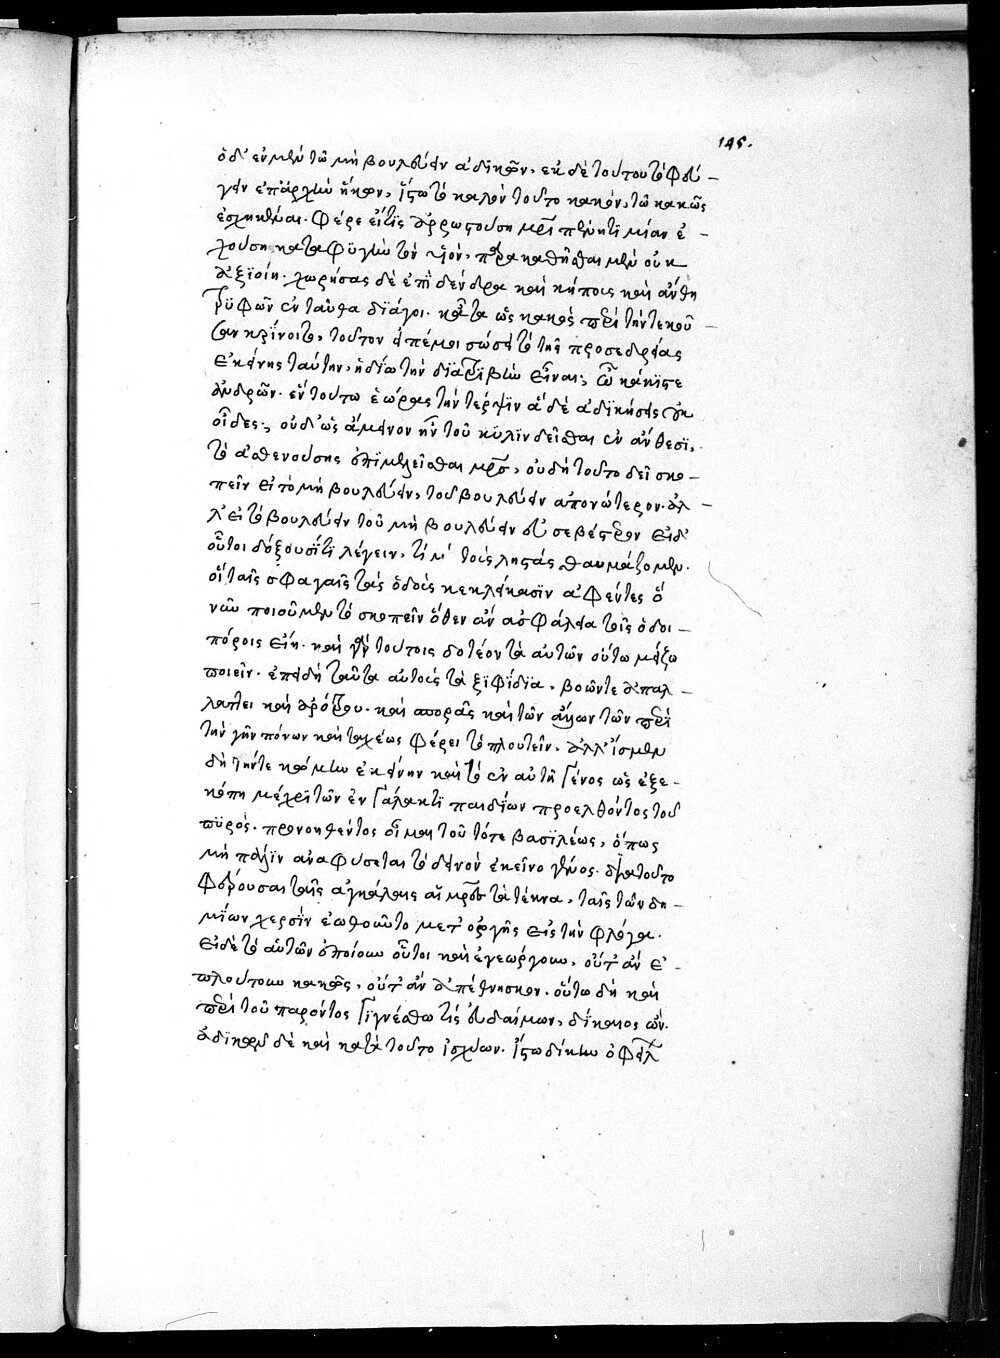 145.
ὁ δ' ἐν μὲν τῶ μὴ βουλεύειν ἀδικῶν, ἐκ δὲ τούτου τὸ φεύ-
γειν ὑπάρχειν ἥκων, ἴστω τὸ καλὸν τοῦτο κακὸν, τῶ κακῶς
ἐσχηκέναι. φέρε εἴ τις ἀρρωστούση μητρὶ πένητι μίαν
χούση καταφυγὴν τὸν υἱὸν, παρακαθῆσθαι μὲν οὐκ
ἀξιοίη. χωρήσας δὲ ἐπὶ δένδρα καὶ κήπους καὶ ἄνθη
τρυφῶν ἐνταῦθα διάγοι. κᾆτα ὡς κακὸς περὶ τὴν τεκοῦ-
σαν κρίνοιτο, τοῦτον ἂν σώσαι τὸ τῆς προσεδρείας
ἐκείνης ταύτην, ἡδίω τὴν διατριβὴν εἶναι; ὦ κάκιστε
ἀνδρῶν. ἐν τούτω ἑώρας τὴν τέρψιν ἃ δὲ ἀδικήσεις οὐκ
οἶδες; οὐδ' ὡς ἄμεινον ἦν τοῦ κυλινδεῖσθαι ἐν ἄνθεσι,
τὸ ἀσθενούσης ἐπιμελεῖσθαι μητρός, οὐ δὴ τοῦτο δεῖ σκο-
πεῖν εἰ τὸ μὴ βουλεύειν, τοῦ βουλεύειν ἀπονώτερον. ἀλ-
λ' εἰ τὸ βουλεύειν τοῦ μὴ βουλεύειν εὐσεβέστερον εἰ δ'
οὗτοι δόξουσί τι λέγειν, τί μὴ τοὺς ληστὰς θαυμάζομεν.
οἳ ταῖς σφαγαῖς τὰς ὁδοὺς κεκλείκασιν ἀφέντες ὃ
νῦν ποιοῦμεν τὸ σκοπεῖν ὅθεν ἂν ἀσφάλεια τοῖς ὁδοι-
πόροις εἴη. καὶ γὰρ τούτοις δοτέον τὰ αὑτῶν οὕτω μείζω
ποιεῖν. ἐπειδὴ ταῦτα αὐτοὺς τὰ ξιφίδια, βοῶν τε ἀπαλ-
λάττει καὶ ἀρότρου. καὶ σπορᾶς καὶ τῶν ἄλλων τῶν περὶ
τὴν γῆν πόνων καὶ ταχέως φέρει τὸ πλουτεῖν. ἀλλ' ἴσμεν
δὴ τήν τε κώμην ἐκείνην καὶ τὸ ἐν αὐτῆ γένος ὡς ἐξε-
κόπη μέχρι τῶν ἐν γάλακτι παιδίων προελθόντος τοῦ
πυρός. προνοηθέντος οἶμαι τοῦ τότε βασιλέως, ὅπως
μὴ πάλιν ἀναφύσεται τὸ δεινὸν ἐκεῖνο γένος. διὰ τοῦτο
φέρουσαι ταῖς ἀγκάλαις αἱ μητέρες τὰ τέκνα, ταῖς τῶν δη-
μίων χερσὶν ἐωθοῦντο μετ' ὀργῆς εἰς τὴν φλόγα.
εἰ δὲ τὸ αὑτῶν ἐποίουν οὗτοι καὶ ἐγεώργουν, οὔτ' ἂν ἐ-
πλούτουν κακῶς, οὔτ' ἂν ἀπέθνησκον. οὕτω δὴ καὶ
περὶ τοῦ παρόντος γιγνέσθω τις εὐδαίμων, δίκαιος ὤν.
ἀδικῶν δὲ καὶ κατὰ τοῦτο ἰσχύων. ἴστω δίκην ὀφείλ